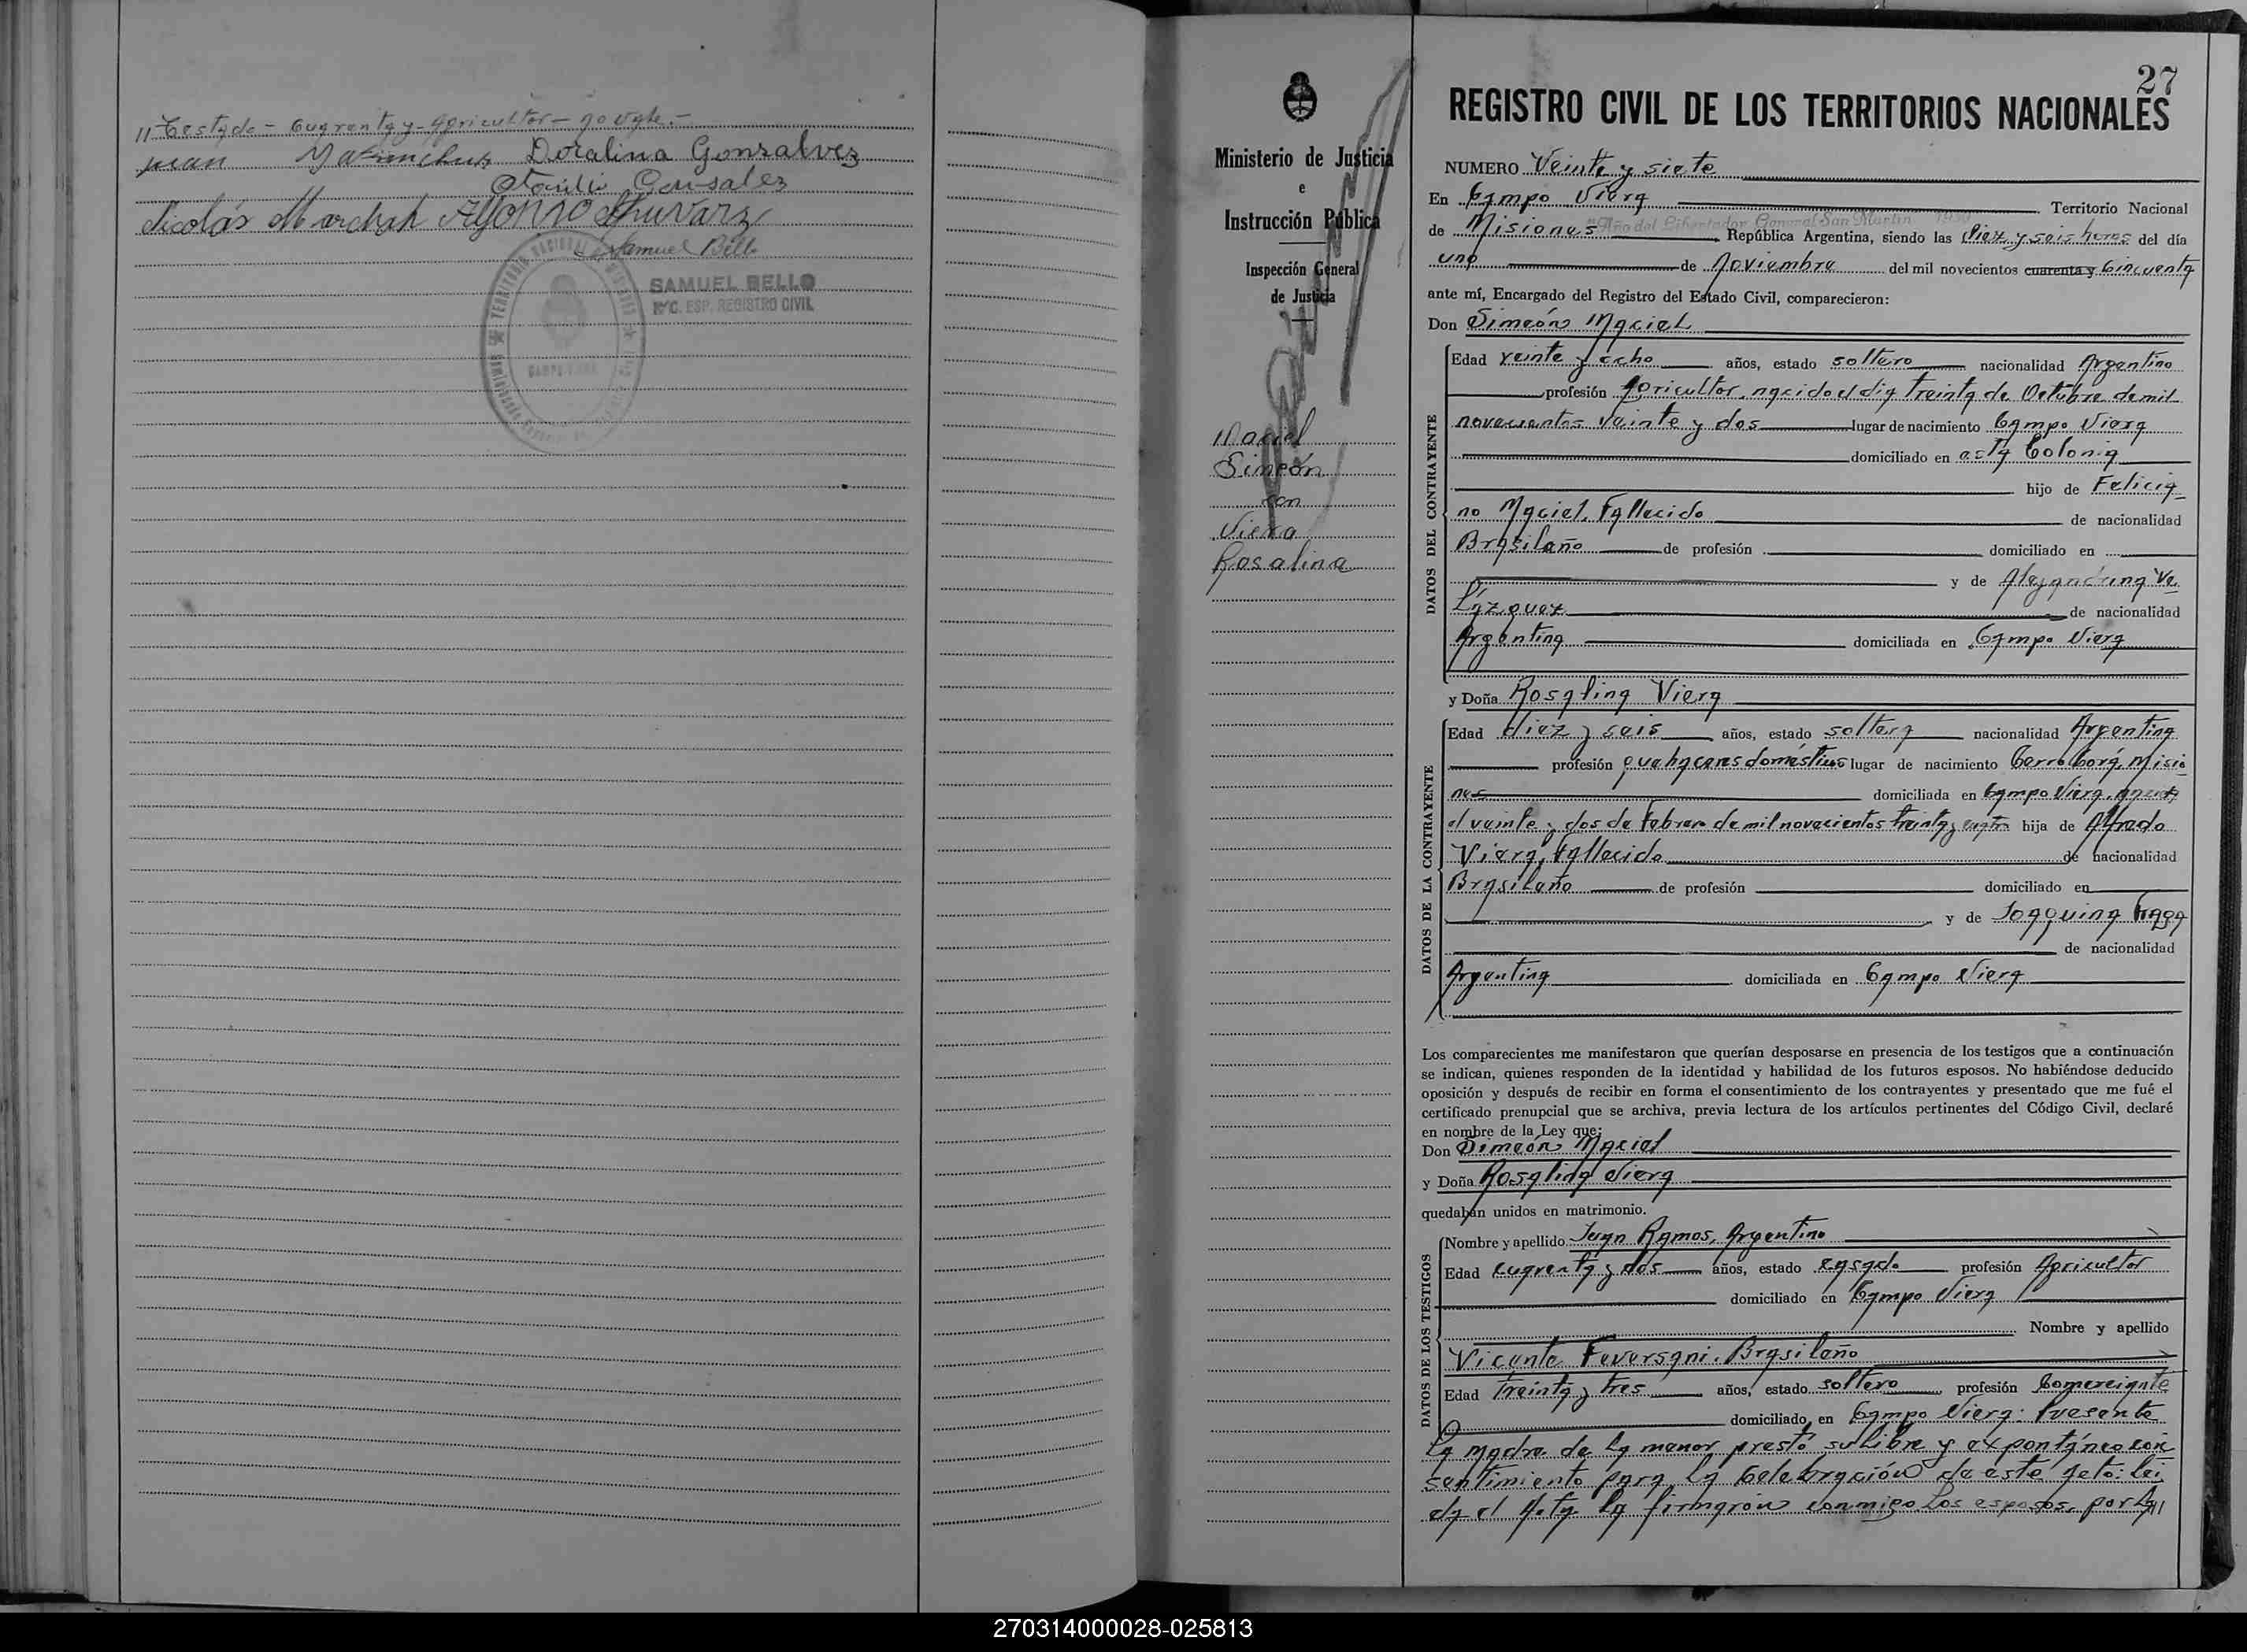 //Testado - Cuarenta y - Agricultor - no vale.-
Juan Doralina Gonsalvez
Gonsalez
Nicolás Alfonso
Samuel Bello
SAMUEL BELLO
ENC. ESP. REGISTRO CIVIL
Ministerio de Justicia
e
Instrucción Pública
Inspección General
de Justicia
Maciel
Simeón
con
Viera
Rosalina
27
REGISTRO CIVIL DE LOS TERRITORIOS NACIONALES
NUMERO Veinte y siete
En Campo Viera Territorio Nacional
"Año del Libertador General San Martín 1950"
de Misiones República Argentina, siendo las diez y seis horas del día
uno de Noviembre del mil novecientos cuarenta y Cincuenta
ante mí, Encargado del Registro del Estado Civil, comparecieron:
Don Simeón Maciel
DATOS DEL CONTRAYENTE
Edad veinte y ocho años, estado soltero nacionalidad Argentino
profesión Agricultor, nacido el dia treinta de Octubre de mil
novecientos veinte y dos lugar de nacimiento Campo Viera
domiciliado en esta Colonia
hijo de Felicia-
no Maciel, fallecido de nacionalidad
Brasileño de profesión domiciliado en
y de Alejandrina Ve
lázquez de nacionalidad
Argentina domiciliada en Campo Viera
y Doña Rosalina Viera
DATOS DE LA CONTRAYENTE
Edad diez y seis años, estado soltera nacionalidad Argentina
profesión quehaceres domésticos lugar de nacimiento Cerro Corá, Misio
nes domiciliada en Campo Viera, nacida
el veinte y dos de Febrero de mil novecientos treinta y cuatro hija de Alfredo
Viera, fallecido de nacionalidad
Brasileño de profesión domiciliado en
y de Joaquina Fraga
de nacionalidad
Argentina domiciliada en Campo Viera
Los comparecientes me manifestaron que querían desposarse en presencia de los testigos que a continuación
se indican, quienes responden de la identidad y habilidad de los futuros esposos. No habiéndose deducido
oposición y después de recibir en forma el consentimiento de los contrayentes y presentado que me fué el
certificado prenupcial que se archiva, previa lectura de los artículos pertinentes del Código Civil, declaré
en nombre de la Ley que:
Don Simeón Maciel
y Doña Rosalina Viera
quedaban unidos en matrimonio.
DATOS DE LOS TESTIGOS
Nombre y apellido Juan Ramos, Argentino
Edad cuarenta y dos años, estado casado profesión Agricultor
domiciliado en Campo Viera
Nombre y apellido
Vicente Feversani, Brasileño
Edad treinta y tres años, estado soltero profesión Comerciante
domiciliado en Campo Viera: Presente
la madre de la menor prestó su libre y expontáneo con
sentimiento para la Celebración de este acto: lei
da el Acta la firmaron conmigo los esposos, por la//
270314000028-025813